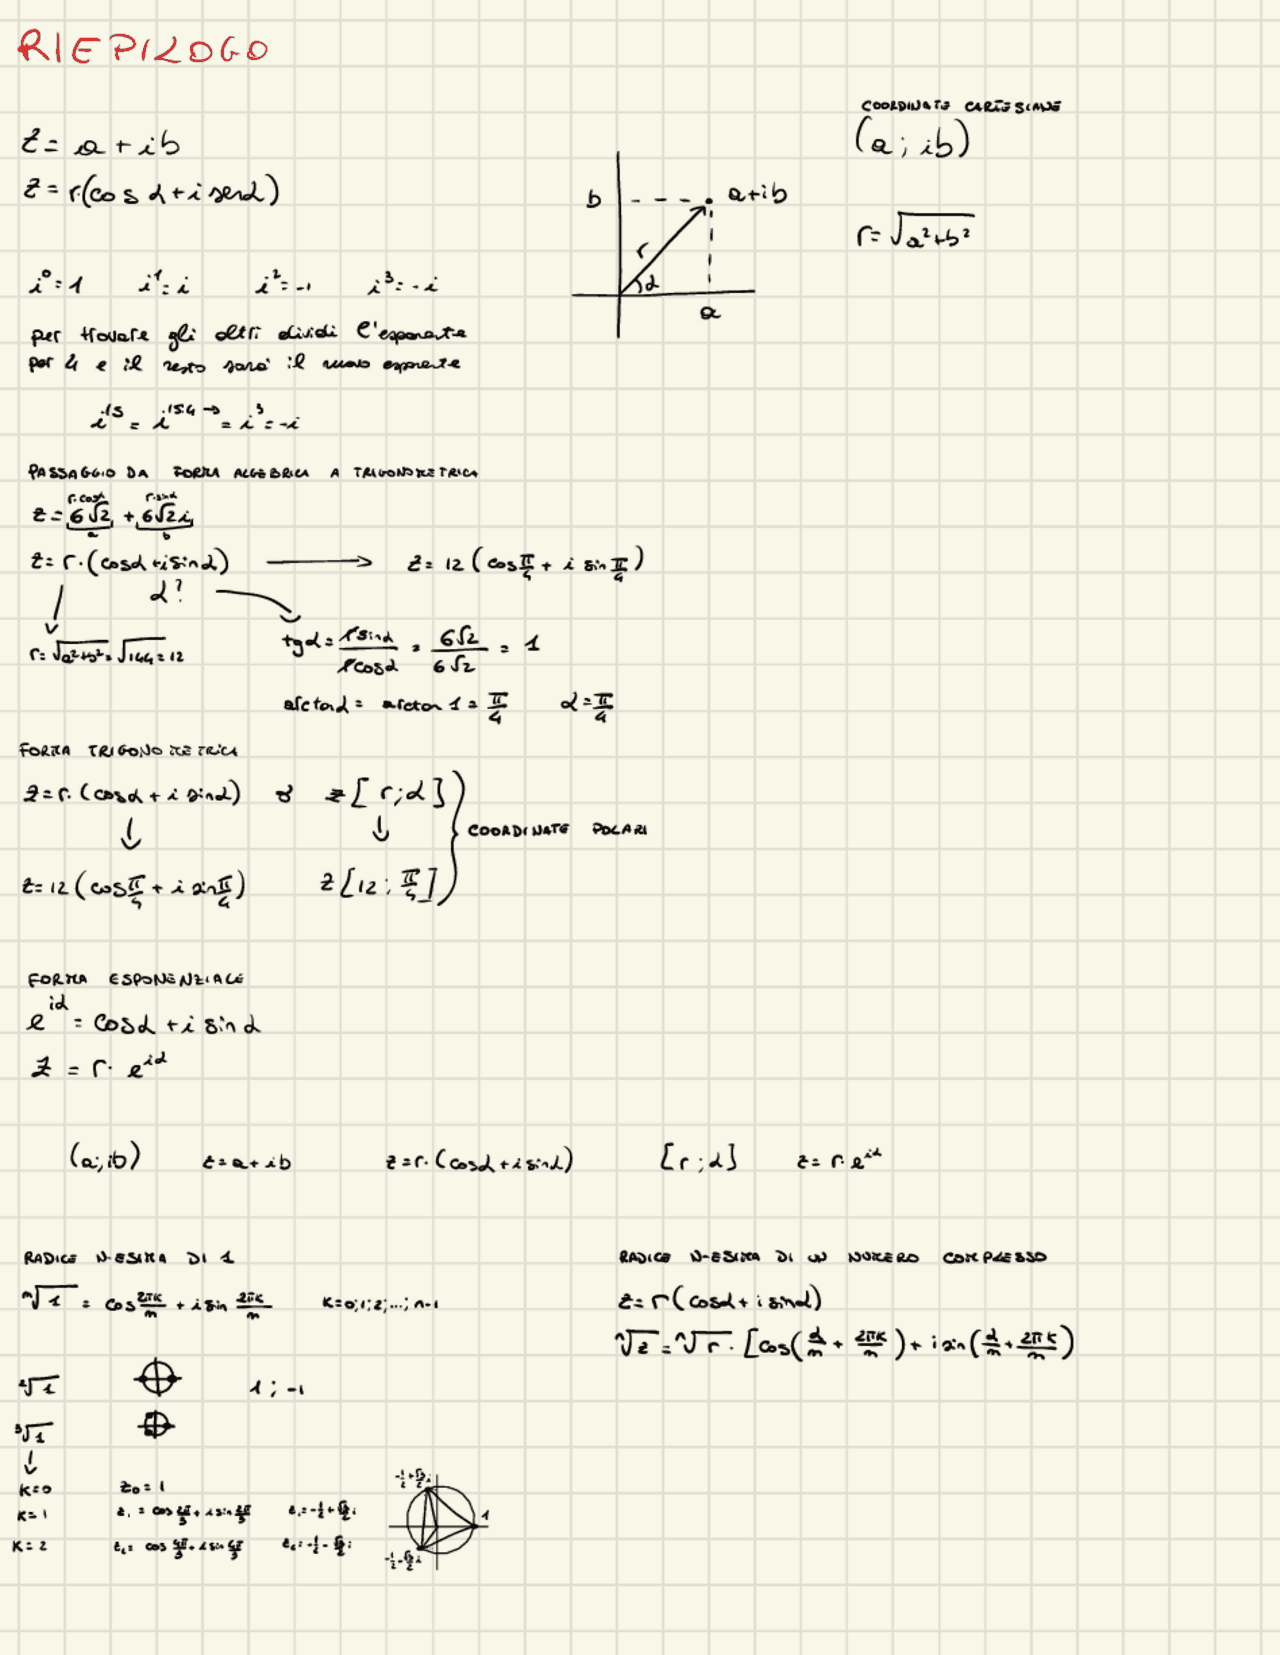 RIEPILOGO
COORDINATE CARTESIANE
z = a + ib
(a ; ib)
z = r·(cos α + i sen α)
b
a+ib
r = √a²+b²
r
α
a
i⁰ = 1 i¹ = i i² = -1 i³ = -i
per trovare gli altri dividi l'esponente
per 4 e il resto sarà il nuovo esponente
i¹⁵ = i¹⁵:⁴ → = i³ = -i
PASSAGGIO DA FORMA ALGEBRICA A TRIGONOMETRICA
r·cosα r·sinα
z = 6√2 + 6√2 i
a b
z = r·(cosα + i sinα) → z = 12 (cos π/4 + i sin π/4)
α?
r = √a²+b² = √144 = 12
tgα = r sinα / r cosα = 6√2 / 6√2 = 1
arctanα = arctan 1 = π/4 α = π/4
FORMA TRIGONOMETRICA
z = r·(cosα + i sinα) o z [r ; α]
COORDINATE POLARI
z = 12 (cos π/4 + i sin π/4) z [12 ; π/4]
FORMA ESPONENZIALE
e^iα = cosα + i sinα
z = r · e^iα
(a ; ib) z = a + ib z = r·(cosα + i sinα) [r ; α] z = r·e^iα
RADICE N-ESIMA DI 1
ⁿ√1 = cos 2πk/n + i sin 2πk/n K = 0; 1; 2; ...; n-1
²√1 1 ; -1
³√1
K = 0 z₀ = 1
K = 1 z₁ = cos 2π/3 + i sin 2π/3 z₁ = -1/2 + √3/2 i
K = 2 z₂ = cos 4π/3 + i sin 4π/3 z₂ = -1/2 - √3/2 i
-1/2 + √3/2 i
1
-1/2 - √3/2 i
RADICE N-ESIMA DI UN NUMERO COMPLESSO
z = r (cosα + i sinα)
ⁿ√z = ⁿ√r · [cos(α/n + 2πk/n) + i sin(α/n + 2πk/n)